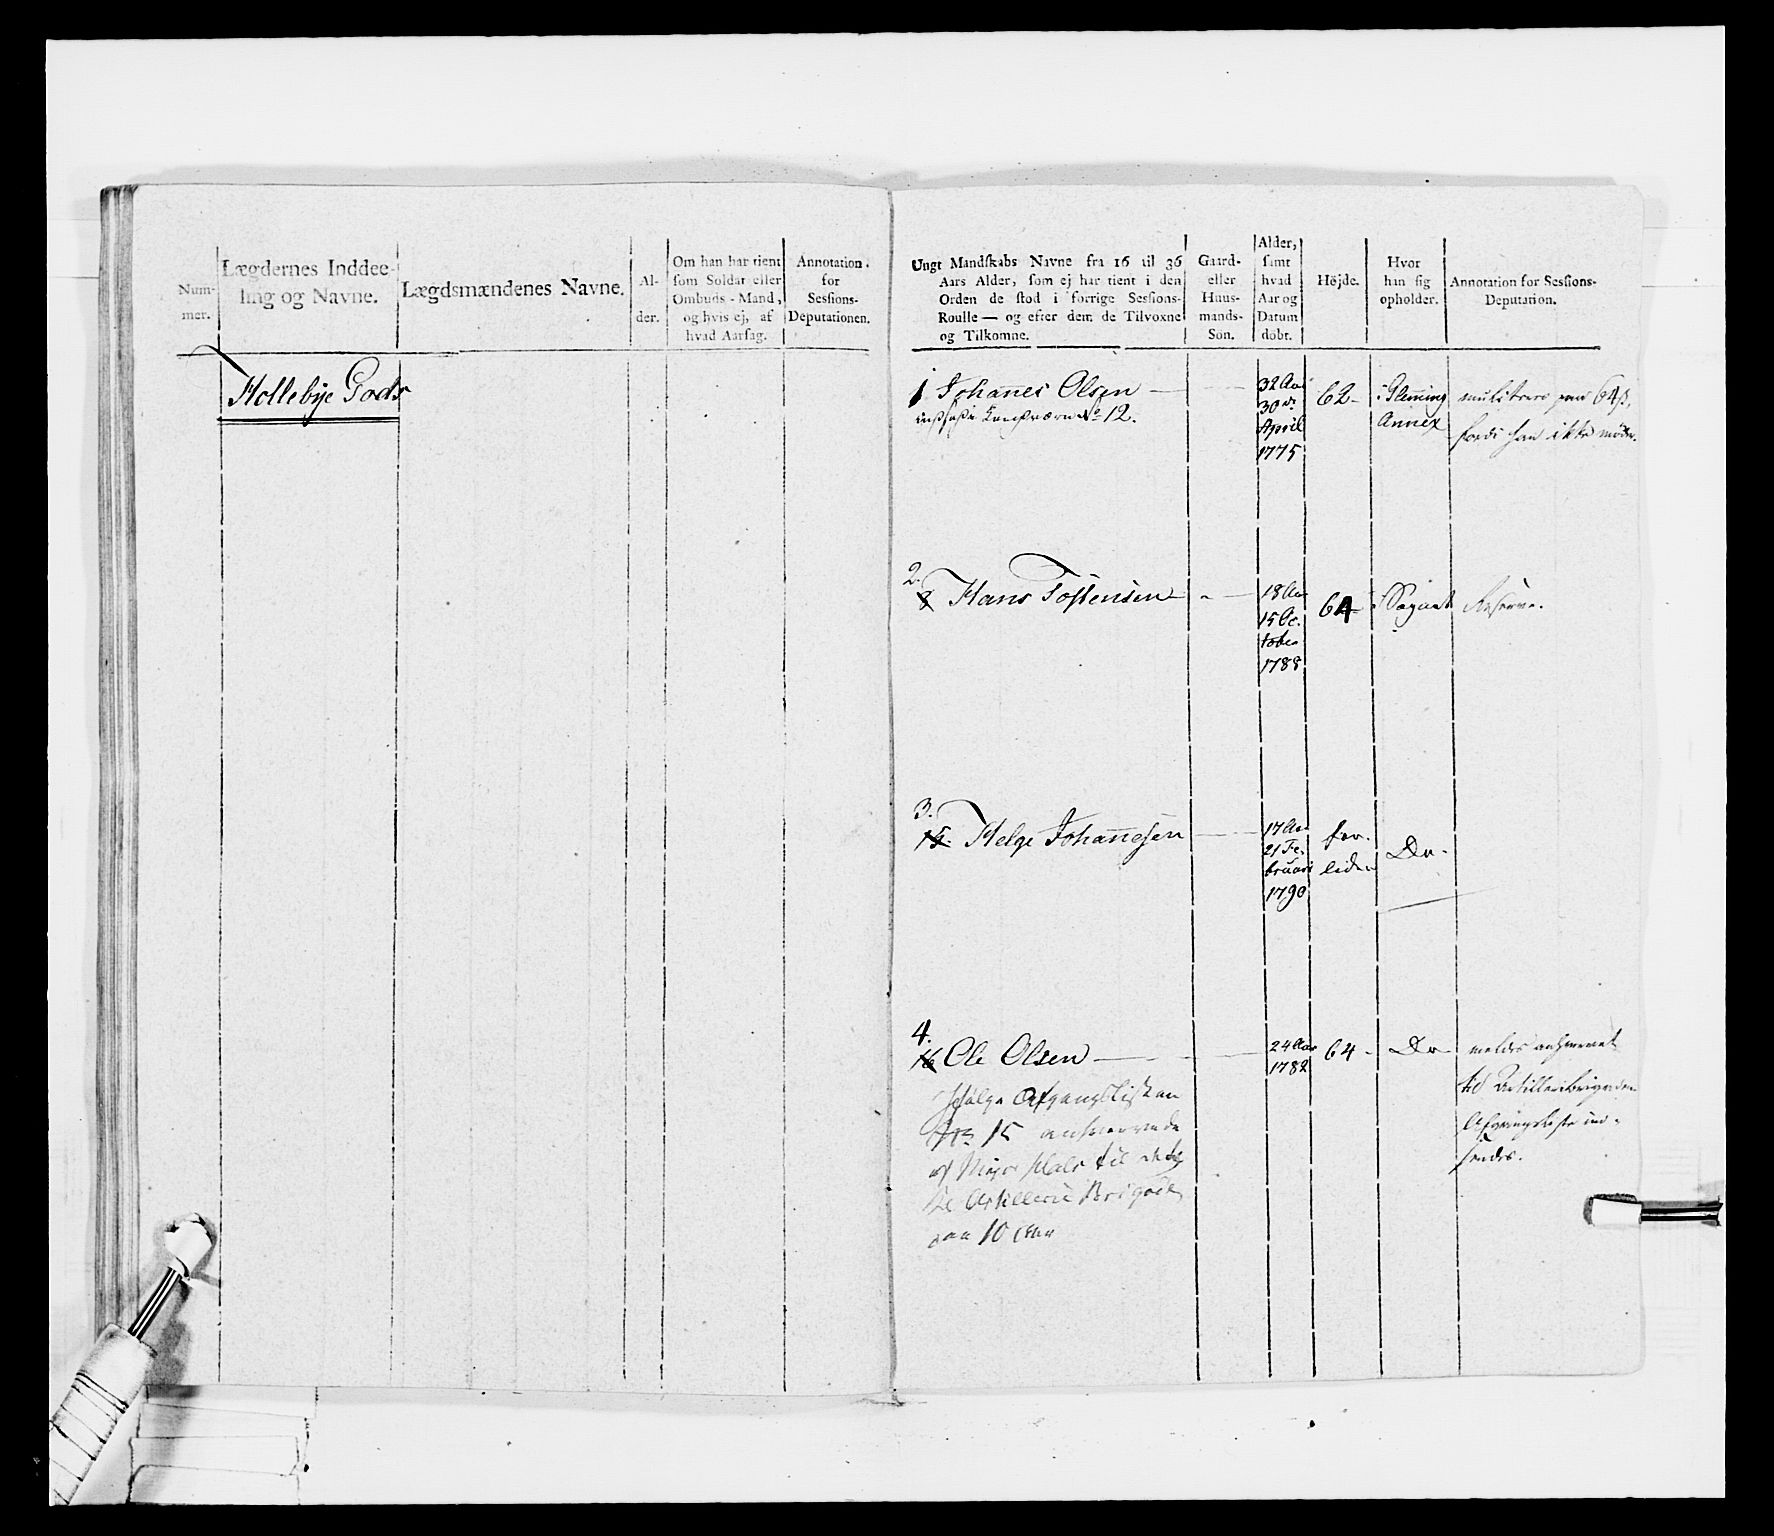 Num-
mer.
Lægdernes Inddee-
ling og Navne.
Lægdsmændenes Navne.
Al-
der.
Om han har tient
som Soldat eller
Ombuds-Mand,
og hvis ej, af
hvad Aarsag.
Annotation
for
Sessions-
Deputationen.
Hollebye Gods
Ungt Mandskabs Navne fra 16 til 36
Aars Alder, som ej har tient i den
Orden de stod i forrige Sessions-
Roulle — og efter dem de Tilvoxne
og Tilkomne.
Gaard-
eller
Huus-
mands-
Sön.
Alder,
samt
hvad
Aar og
Datum
döbt.
Höjde.
Hvor
han sig
opholder.
Annotation for Sessions-
Deputation.
1 Johanes Olsen
No 12.
32 Aar
30de
April
1775
62
i Gleming
Annex
64 β,
fordi han ikke möder.
2.
8 Hans Tostensen
18 Aar
15 Oc-
tober
1788
64
Reserve.
3.
15. Helge Johanesen
17 Aar
21 Fe-
bruari
1790
for-
liden
Do
4.
16 Ole Olsen
24 Aar
1782
64
Do
meldes anhvervet
til Artilleribrigaden
Afgangsliste ind-
sendes.
Ifølge Afgangslisten
No 15 anhvervede
af Major til
Artillerie Brigade
paa 10 Aar